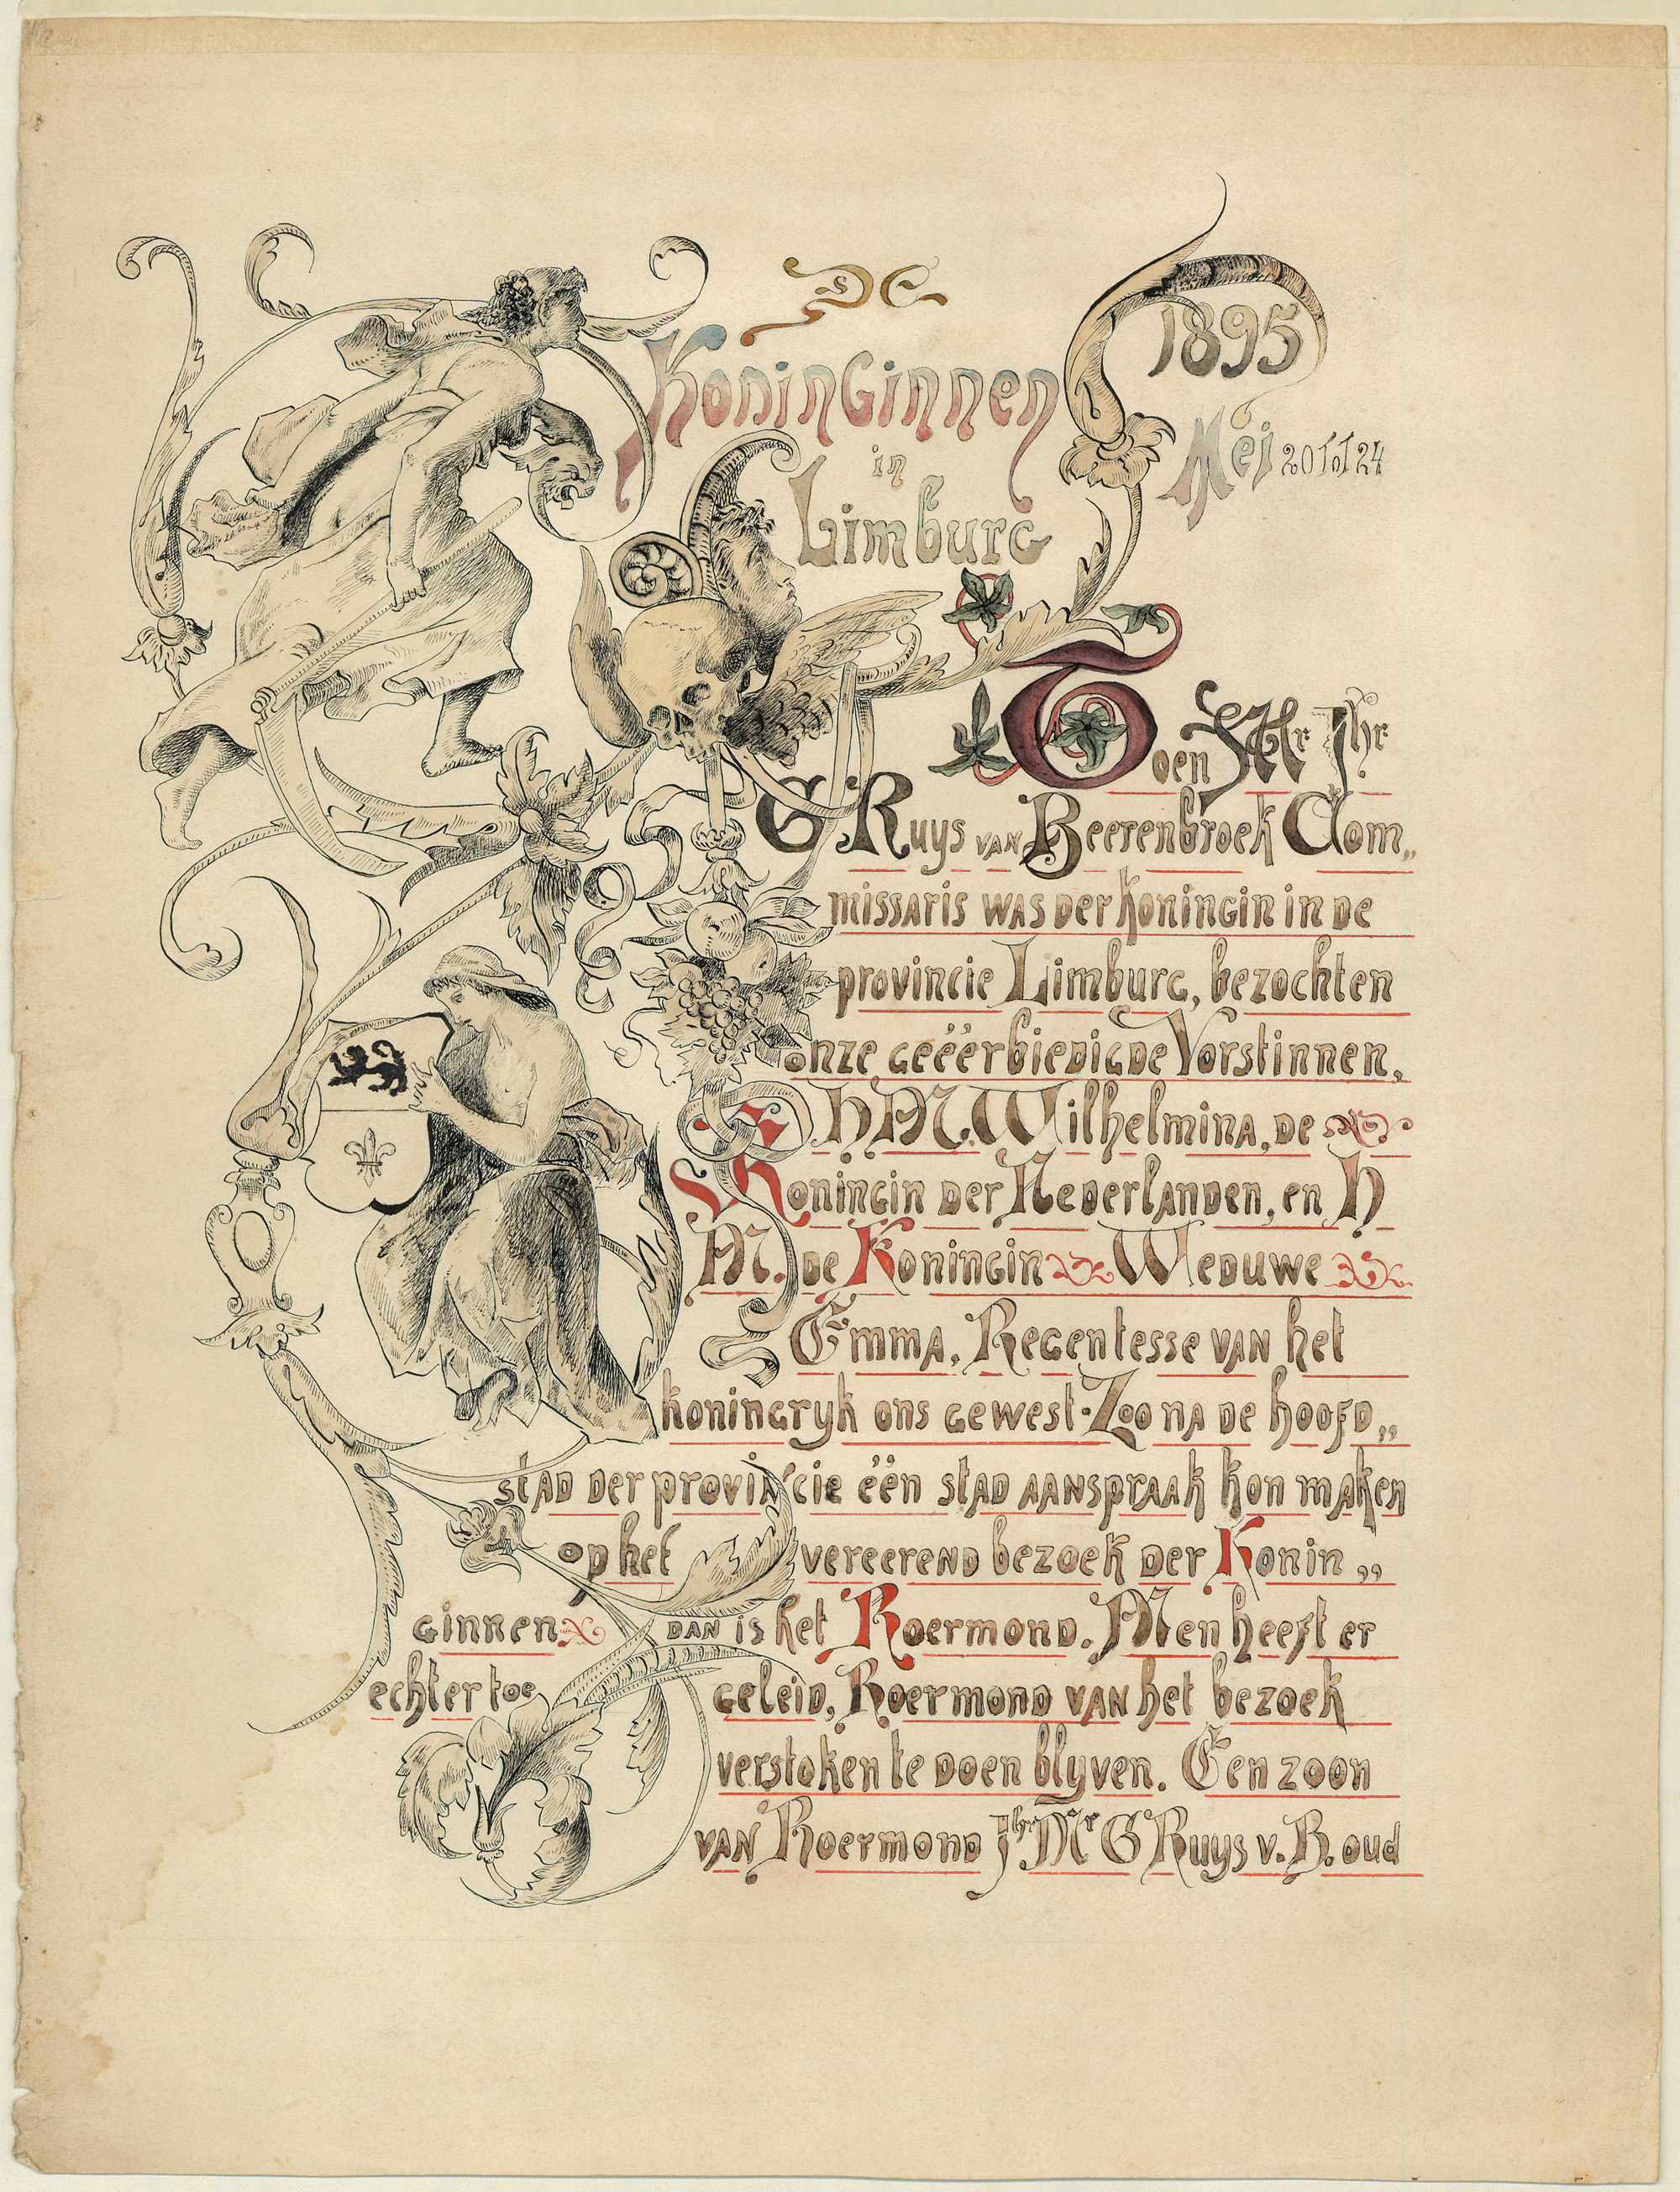 De
Koninginnen
in
Limburg
1895
Mei 20 tot 24
Toen Mr Jhr
G Ruys van Beerenbroek Com„
missaris was der Koningin in de
provincie Limburg, bezochten
onze geëerbiedigde Vorstinnen,
H M. Wilhelmina, de
Koningin der Nederlanden, en H
M. de Koningin Weduwe
Emma, Regentesse van het
koningryk ons gewest. Zoo na de hoofd„
stad der provincie één stad aanspraak kon maken
op het vereerend bezoek der Konin„
ginnen dan is het Roermond. Men heeft er
echter toe geleid, Roermond van het bezoek
verstoken te doen blyven. Een zoon
van Roermond Jhr Mr G Ruys v. B. oud